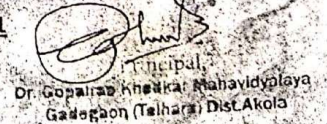 Principal,
Dr. Gopalrao Khedkar Mahavidyalaya
Gadegaon (Telhara) Dist.Akola